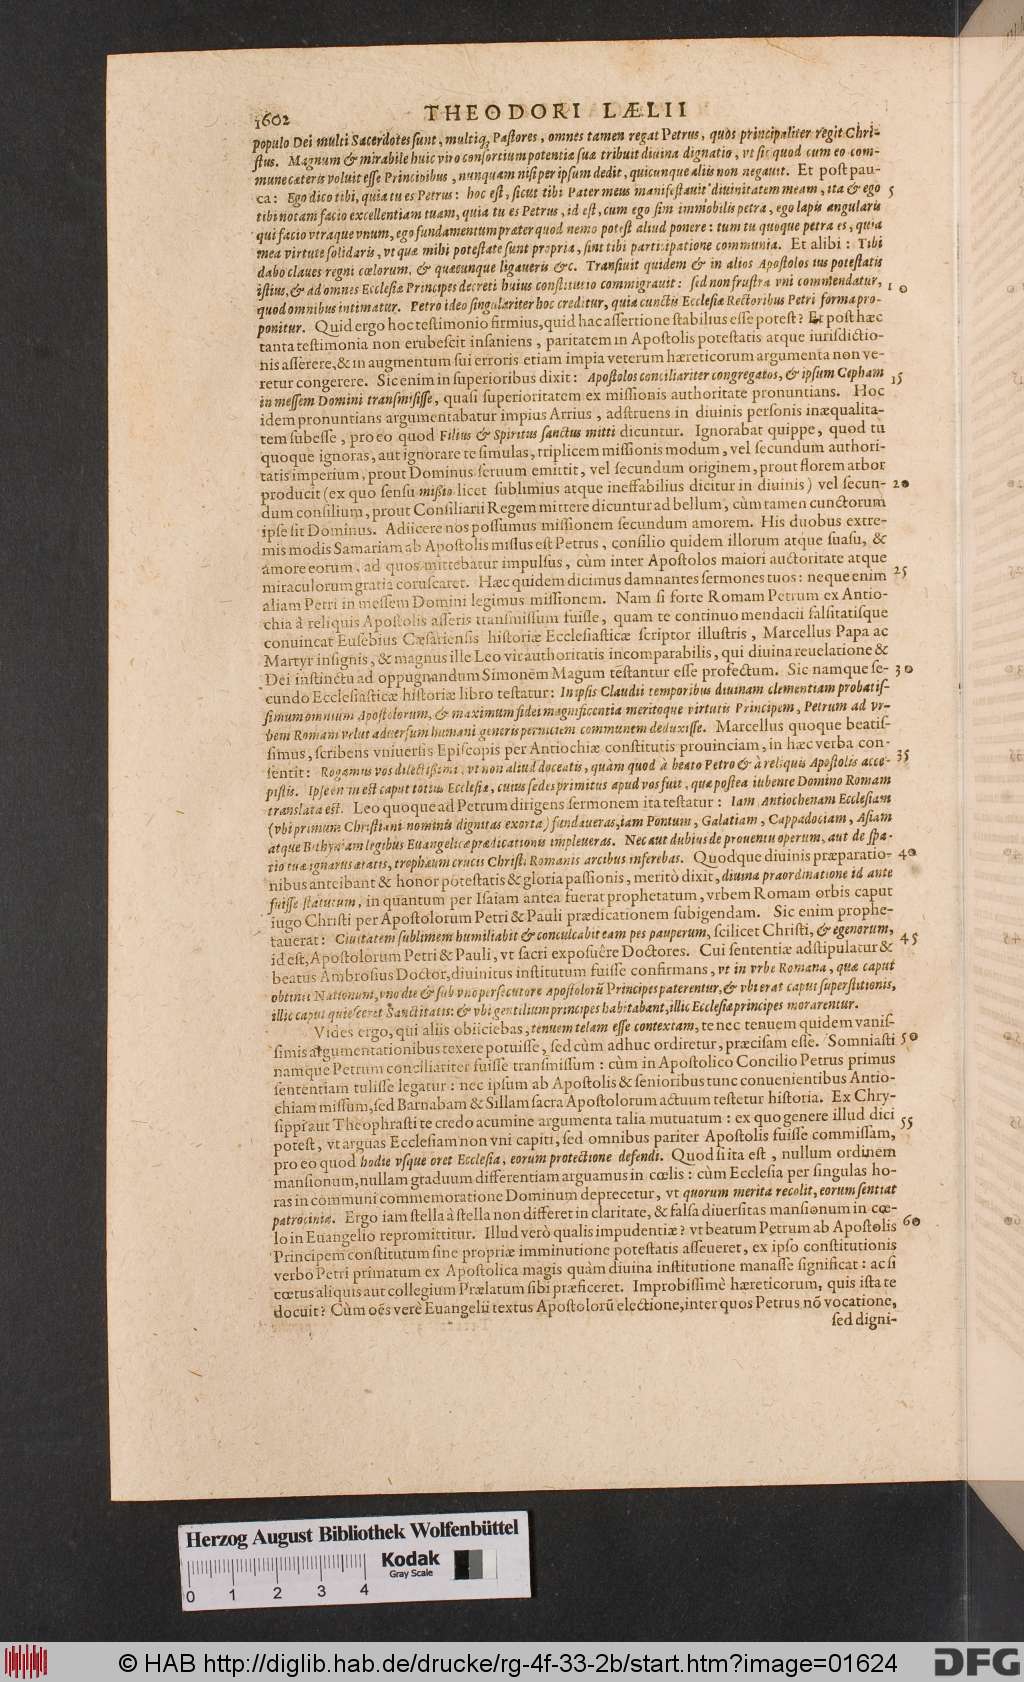 1602 THEODORI LÆLII
populo Dei multi Sacerdotes sunt, multiq; Pastores, omnes tamen regat Petrus, quos principaliter regit Chri-
stus. Magnum & mirabile huic viro consortium potentiæ suæ tribuit diuina dignatio, vt si quod cum eo com-
mune cæteris voluit esse Principibus, nunquam nisi per ipsum dedit, quicunque aliis non negauit. Et post pau-
ca: Ego dico tibi, quia tu es Petrus: hoc est, sicut tibi Pater meus manifestauit diuinitatem meam, ita & ego 5
tibi notam facio excellentiam tuam, quia tu es Petrus, id est, cum ego sim immobilis petra, ego lapis angularis
qui facio vtraque vnum, ego fundamentum præter quod nemo potest aliud ponere: tum tu quoque petra es, quia
mea virtute solidaris, vt quæ mihi potestate sunt propria, sint tibi participatione communia. Et alibi: Tibi
dabo claues regni cœlorum, & quæcunque ligaueris &c. Transiuit quidem & in alios Apostolos ius potestatis
istius, & ad omnes Ecclesiæ Principes decreti huius constitutio commigrauit: sed non frustra vni commendatur, 10
quod omnibus intimatur. Petro ideo singulariter hoc creditur, quia cunctis Ecclesiæ Rectoribus Petri forma pro-
ponitur. Quid ergo hoc testimonio firmius, quid hac assertione stabilius esse potest? Et post hæc
tanta testimonia non erubescit insaniens, paritatem in Apostolis potestatis atque iurisdictio-
nis asserere, & in augmentum sui erroris etiam impia veterum hæreticorum argumenta non ve-
retur congerere. Sic enim in superioribus dixit: Apostolos conciliariter congregatos, & ipsum Cepham 15
in messem Domini transmisisse, quasi superioritatem ex missionis authoritate pronuntians. Hoc
idem pronuntians argumentabatur impius Arrius, adstruens in diuinis personis inæqualita-
tem subesse, pro eo quod Filius & Spiritus sanctus mitti dicuntur. Ignorabat quippe, quod tu
quoque ignoras, aut ignorare te simulas, triplicem missionis modum, vel secundum authori-
tatis imperium, prout Dominus seruum emittit, vel secundum originem, prout florem arbor
producit (ex quo sensu missio licet sublimius atque ineffabilius dicitur in diuinis) vel secun- 20
dum consilium, prout Consiliarii Regem mittere dicuntur ad bellum, cùm tamen cunctorum
ipse sit Dominus. Adiicere nos possumus missionem secundum amorem. His duobus extre-
mis modis Samariam ab Apostolis missus est Petrus, consilio quidem illorum atque suasu, &
amore eorum, ad quos mittebatur impulsus, cùm inter Apostolos maiori auctoritate atque
miraculorum gratia coruscaret. Hæc quidem dicimus damnantes sermones tuos: neque enim 25
aliam Petri in messem Domini legimus missionem. Nam si forte Romam Petrum ex Antio-
chia à reliquis Apostolis asseris transmissum fuisse, quam te continuo mendacii falsitatisque
conuincat Eusebius Cæsariensis historiæ Ecclesiasticæ scriptor illustris, Marcellus Papa ac
Martyr insignis, & magnus ille Leo vir authoritatis incomparabilis, qui diuina reuelatione &
Dei instinctu ad oppugnandum Simonem Magum testantur esse profectum. Sic namque se- 30
cundo Ecclesiasticæ historiæ libro testatur: In ipsis Claudii temporibus diuinam clementiam probatis-
simum omnium Apostolorum, & maximum fidei magnificentia meritoque virtutis Principem, Petrum ad vr-
bem Romam velut aduersum humani generis perniciem communem deduxisse. Marcellus quoque beatis-
simus, scribens vniuersis Episcopis per Antiochiæ constitutis prouinciam, in hæc verba con-
sentit: Rogamus vos dilectissimi, vt non aliud doceatis, quàm quod à beato Petro & à reliquis Apostolis acce- 35
pistis. Ipse enim est caput totius Ecclesiæ, cuius sedes primitus apud vos fuit, quæ postea iubente Domino Romam
translata est. Leo quoque ad Petrum dirigens sermonem ita testatur: Iam Antiochenam Ecclesiam
(vbi primum Christiani nominis dignitas exorta) fundaueras, iam Pontum, Galatiam, Cappadociam, Asiam
atque Bithyniam legibus Euangelicæ prædicationis impleueras. Nec aut dubius de prouentu operum, aut de spa-
tio tuæ ignarus ætatis, trophæum crucis Christi Romanis arcibus inferebas. Quodque diuinis præparatio- 40
nibus anteibant & honor potestatis & gloria passionis, meritò dixit, diuina præordinatione id ante
fuisse statutum, in quantum per Isaiam antea fuerat prophetatum, vrbem Romam orbis caput
iugo Christi per Apostolorum Petri & Pauli prædicationem subigendam. Sic enim prophe-
tauerat: Ciuitatem sublimem humiliabit & conculcabit eam pes pauperum, scilicet Christi, & egenorum, 45
id est, Apostolorum Petri & Pauli, vt sacri exposuêre Doctores. Cui sententiæ adstipulatur &
beatus Ambrosius Doctor, diuinitus institutum fuisse confirmans, vt in vrbe Romana, quæ caput
obtinet Nationum, vno die & sub vno persecutore Apostolorũ Principes paterentur, & vbi erat caput superstitionis,
illic caput quiesceret Sanctitatis: & vbi gentilium principes habitabant, illic Ecclesia principes morarentur.
Vides ergo, qui aliis obiiciebas, tenuem telam esse contextam, te nec tenuem quidem vanis-
simis argumentationibus texere potuisse, sed cùm adhuc ordiretur, præcisam esse. Somniasti 50
namque Petrum conciliariter fuisse transmissum: cùm in Apostolico Concilio Petrus primus
sententiam tulisse legatur: nec ipsum ab Apostolis & senioribus tunc conuenientibus Antio-
chiam missum, sed Barnabam & Sillam sacra Apostolorum actuum testetur historia. Ex Chry-
sippi aut Theophrasti te credo acumine argumenta talia mutuatum: ex quo genere illud dici
potest, vt arguas Ecclesiam non vni capiti, sed omnibus pariter Apostolis fuisse commissam, 55
pro eo quod hodie vsque oret Ecclesia, eorum protectione defendi. Quod si ita est, nullum ordinem
mansionum, nullam graduum differentiam arguamus in cœlis: cùm Ecclesia per singulas ho-
ras in communi commemoratione Dominum deprecetur, vt quorum merita recolit, eorum sentiat
patrocinia. Ergo iam stella à stella non differet in claritate, & falsa diuersitas mansionum in cœ-
lo in Euangelio repromittitur. Illud verò qualis impudentiæ? vt beatum Petrum ab Apostolis 60
Principem constitutum sine propriæ imminutione potestatis asseueret, ex ipso constitutionis
verbo Petri primatum ex Apostolica magis quàm diuina institutione manasse significat: ac si
cœtus aliquis aut collegium Prælatum sibi præficeret. Improbissimè hæreticorum, quis ista te
docuit? Cùm oẽs verè Euangelii textus Apostolorũ electione, inter quos Petrus nõ vocatione,
sed digni-
Herzog August Bibliothek Wolfenbüttel
Kodak
Gray Scale
0 1 2 3 4
© HAB http://diglib.hab.de/drucke/rg-4f-33-2b/start.htm?image=01624
DFG